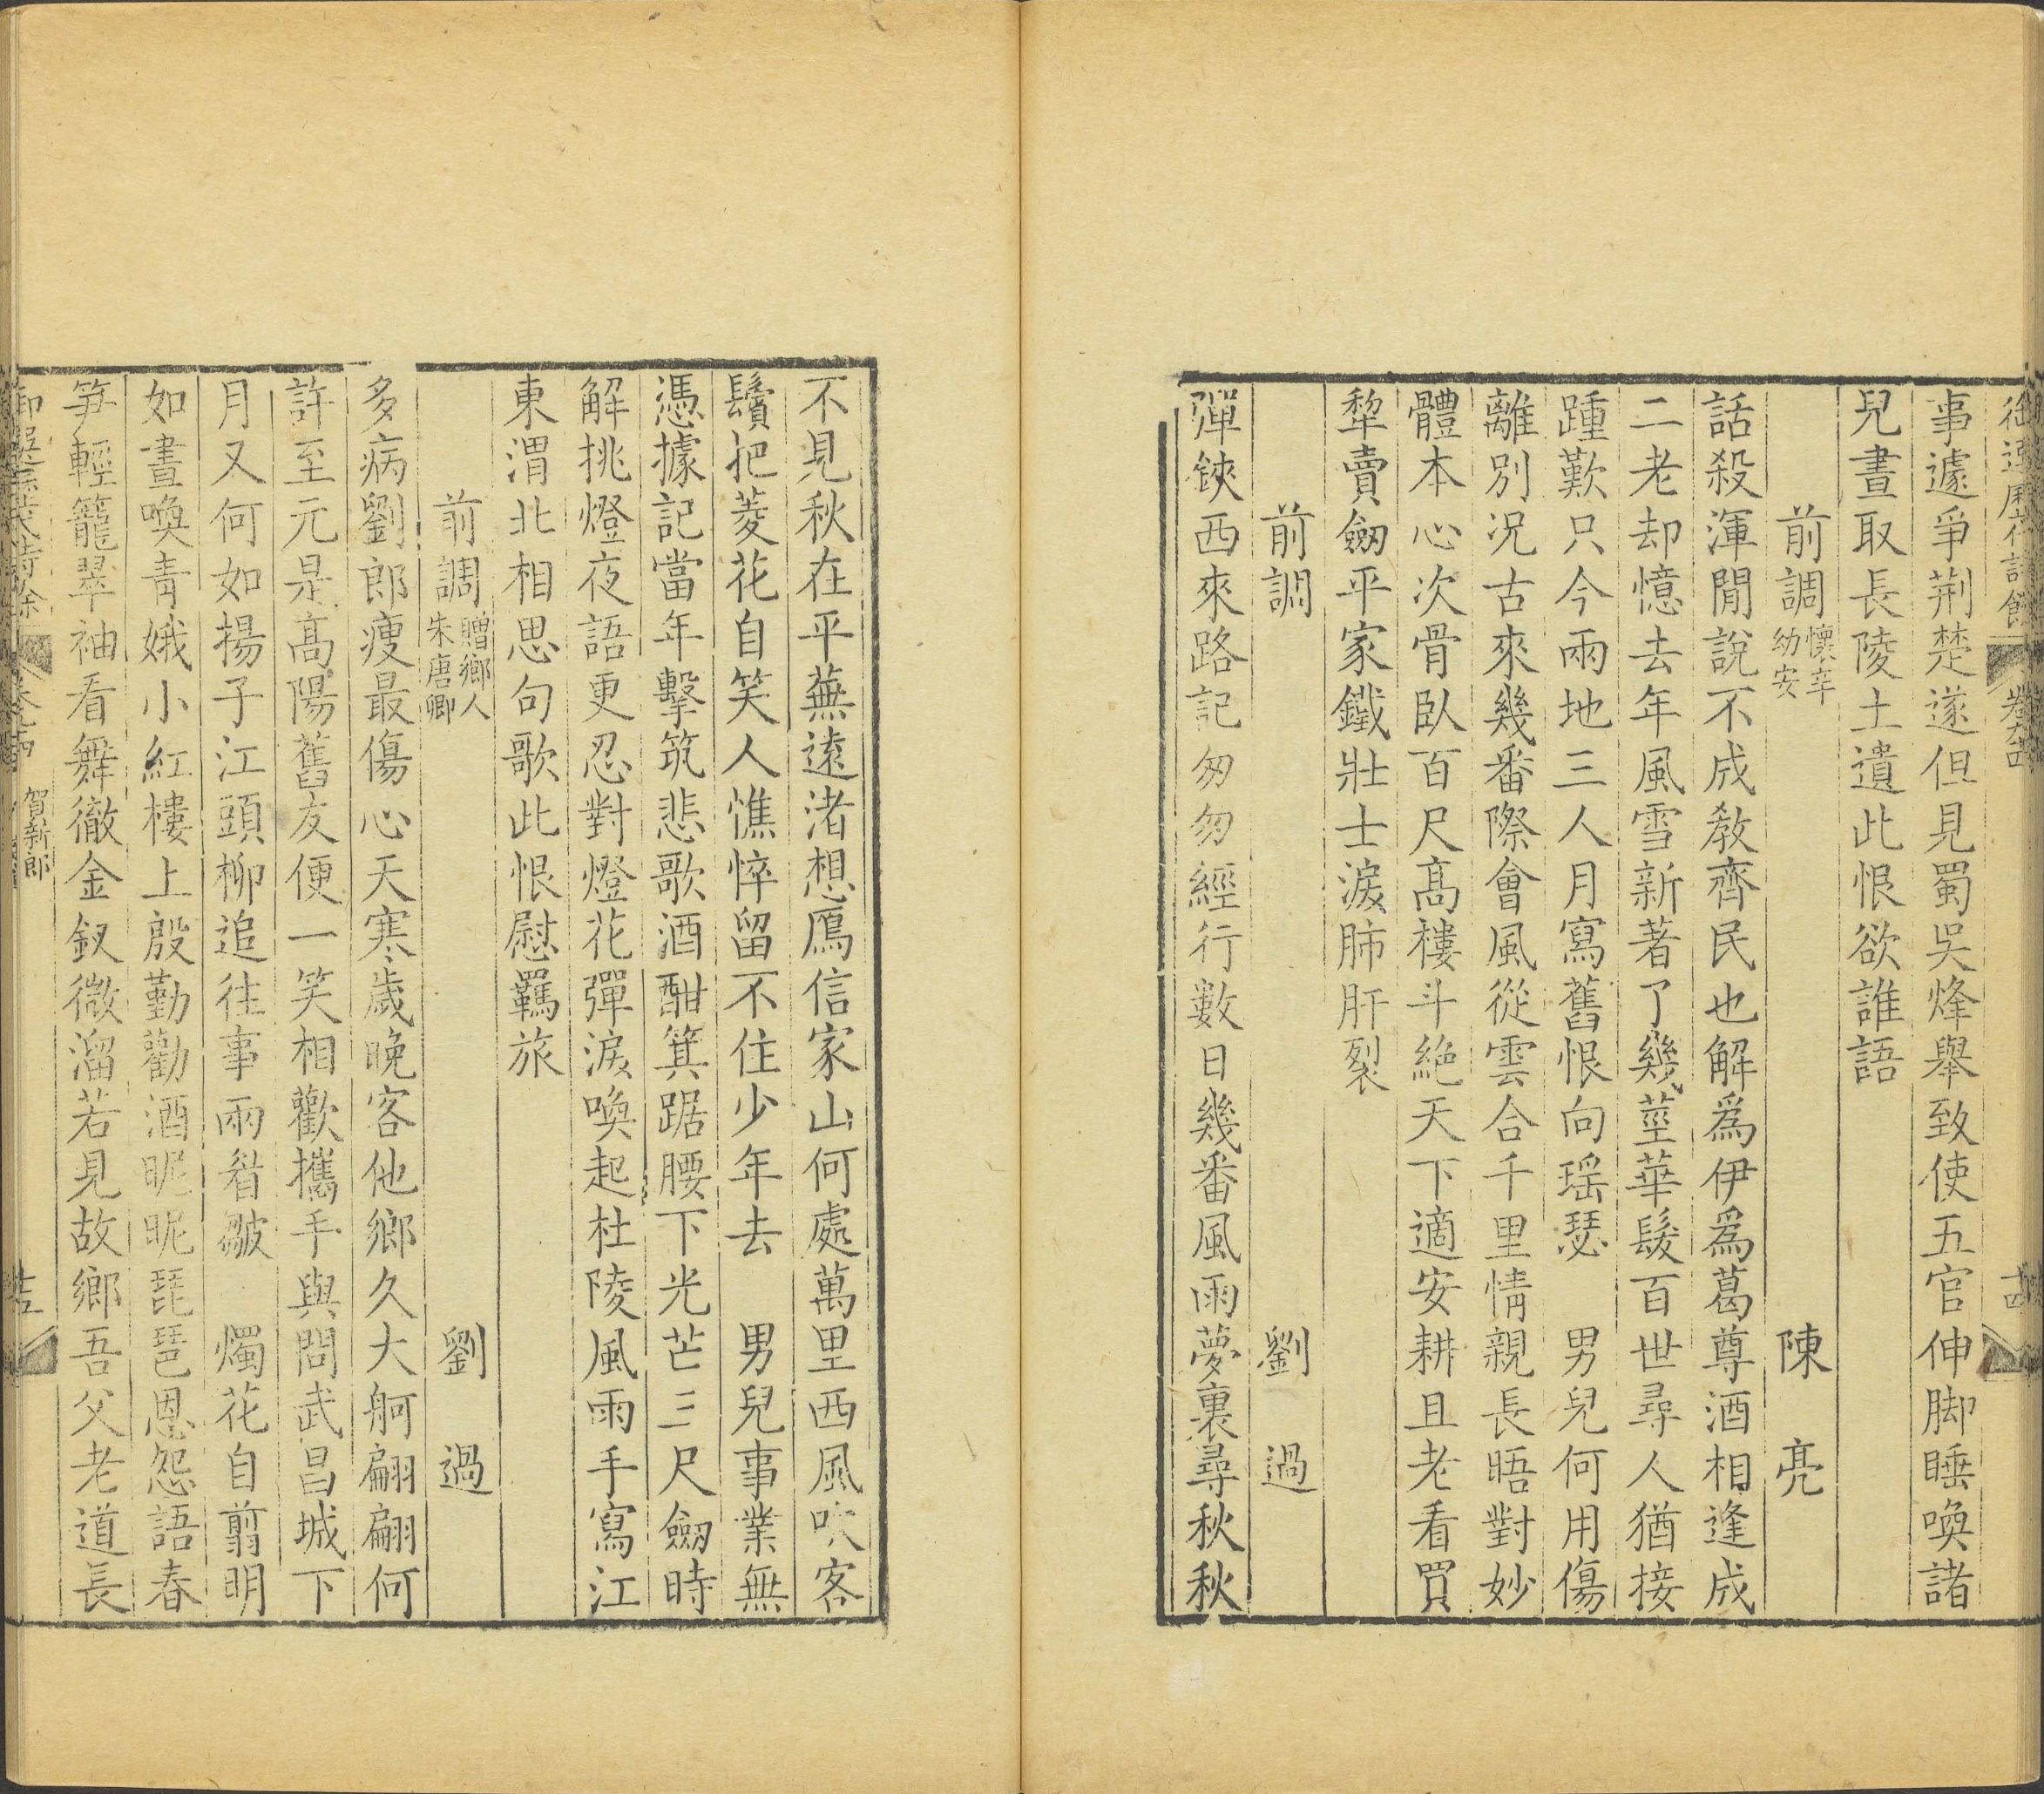 事遽爭荆楚遂但見蜀吳烽舉致使五官伸脚睡喚諸
兒晝取長陵土遺此恨欲誰語
前調懷辛幼安 陳亮
話殺渾閒說不成敎齊民也解爲伊爲葛尊酒相逢成
二老却憶去年風雪新著了幾莖華髮百世尋人猶接
踵歎只今兩地三人月寫舊恨向瑶瑟 男兒何用傷
離別况古來幾番際會風從雲合千里情親長晤對妙
體本心次骨臥百尺髙樓斗絕天下適安耕且老看買
犂賣劒平家鐵壯士淚肺肝裂
前調 劉過
彈鋏西來路記匆匆經行數日幾番風雨夢裏尋秋秋
不見秋在平蕪逺渚想鴈信家山何處萬里西風吹客
鬢把菱花自笑人憔悴留不住少年去 男兒事業無
憑據記當年擊筑悲歌酒酣箕踞腰下光芒三尺劒時
解挑燈夜語更忍對燈花彈淚喚起杜陵風雨手寫江
東渭北相思句歌此恨慰羈旅
前調贈鄉人朱唐卿 劉過
多病劉郎瘦最傷心天寒歲晚客他鄉久大舸翩翩何
許至元是髙陽舊友便一笑相歡攜手與問武昌城下
月又何如揚子江頭柳追往事兩眉皺 燭花自翦明
如晝喚青娥小紅樓上殷勤勸酒昵昵琵琶恩怨語春
笋輕籠翠袖看舞徹金釵微溜若見故鄉吾父老道長
賀新郎